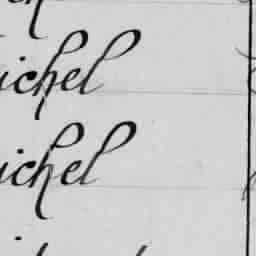 ichel
ichel